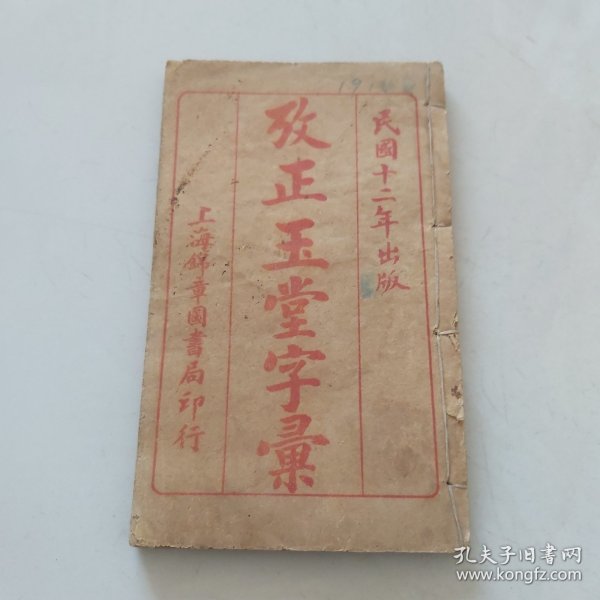 民國十二年出版
攷正玉堂字彙
上海錦章圖書局印行
孔夫子旧书网
www.kongfz.com